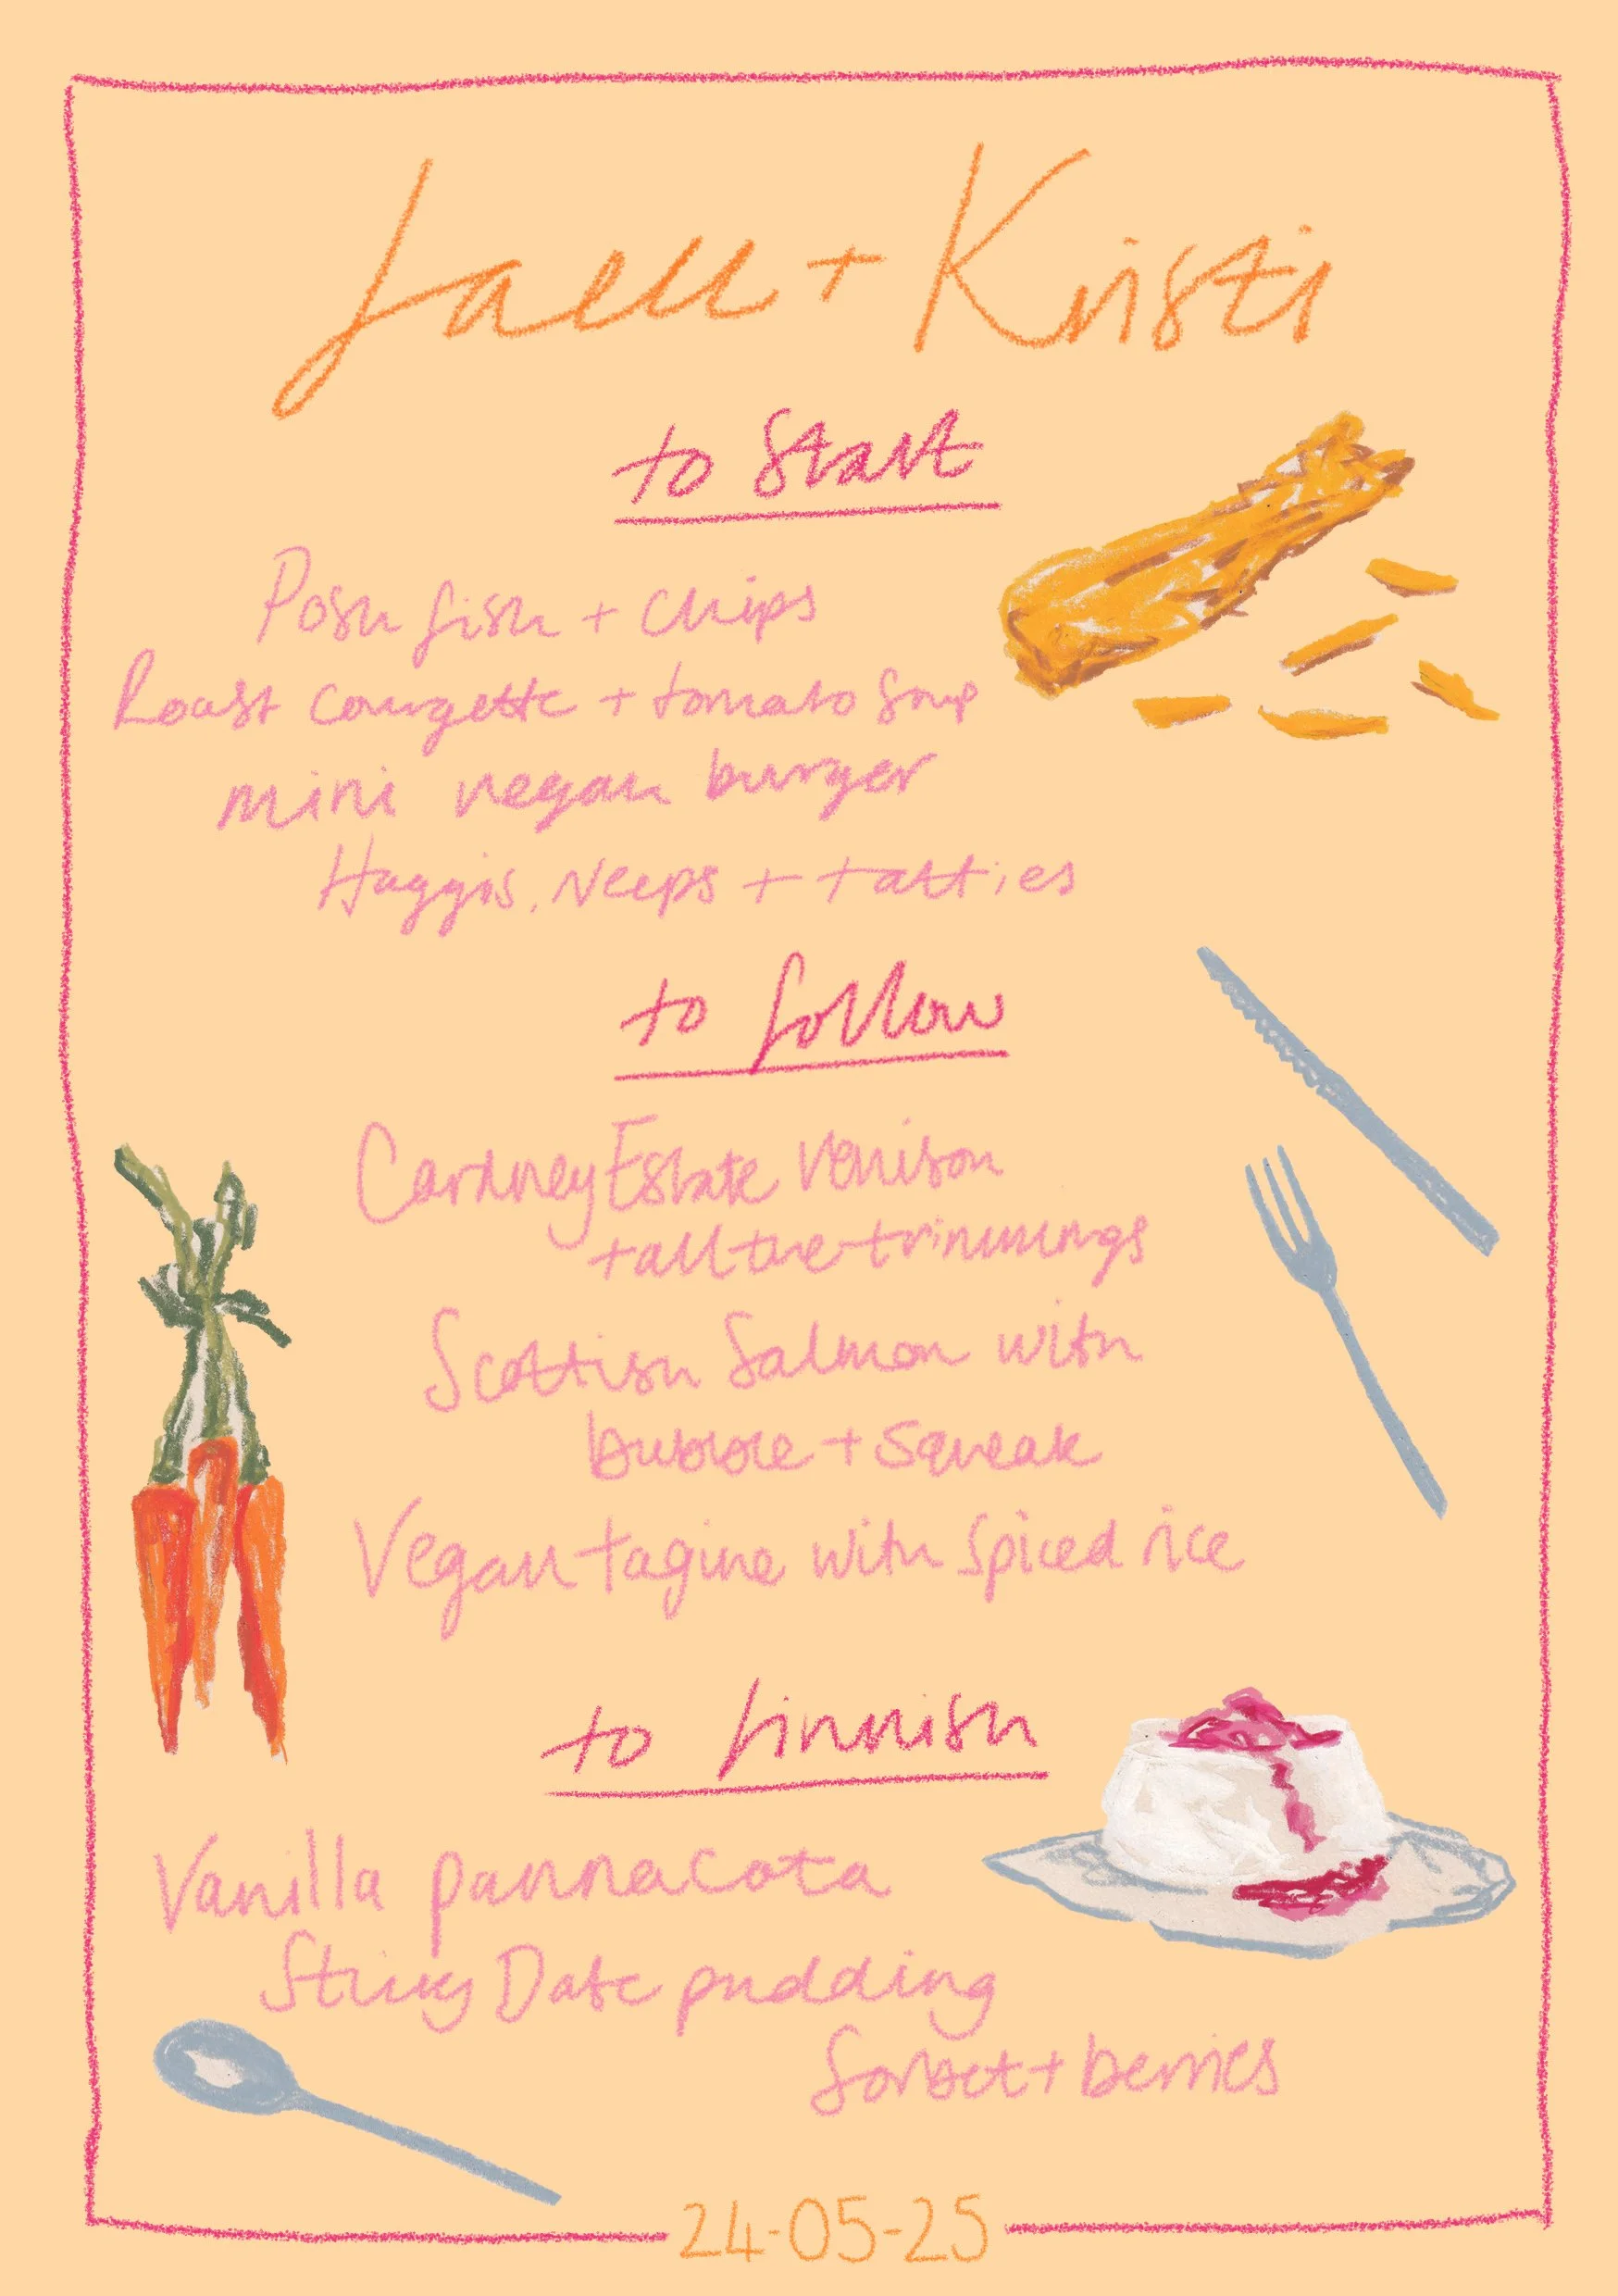 + Kristi
to start
Posh fish + chips
Roast courgette + tomato soup
mini vegan burger
Haggis, Neeps + tatties
to follow
Cardney Estate Venison
+ all the trimmings
Scottish Salmon with
bubble + squeak
Vegan tagine with spiced rice
to finnish
Vanilla pannacota
Sticky Date pudding
Sorbet + berries
24-05-25